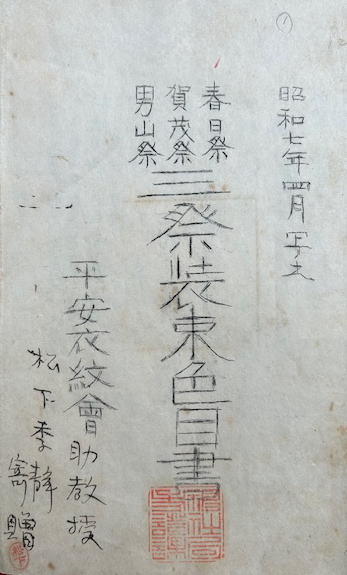 昭和七年四月写之
春日祭
賀茂祭
男山祭
三祭装束色目書
平安衣紋會助教授
松下季静